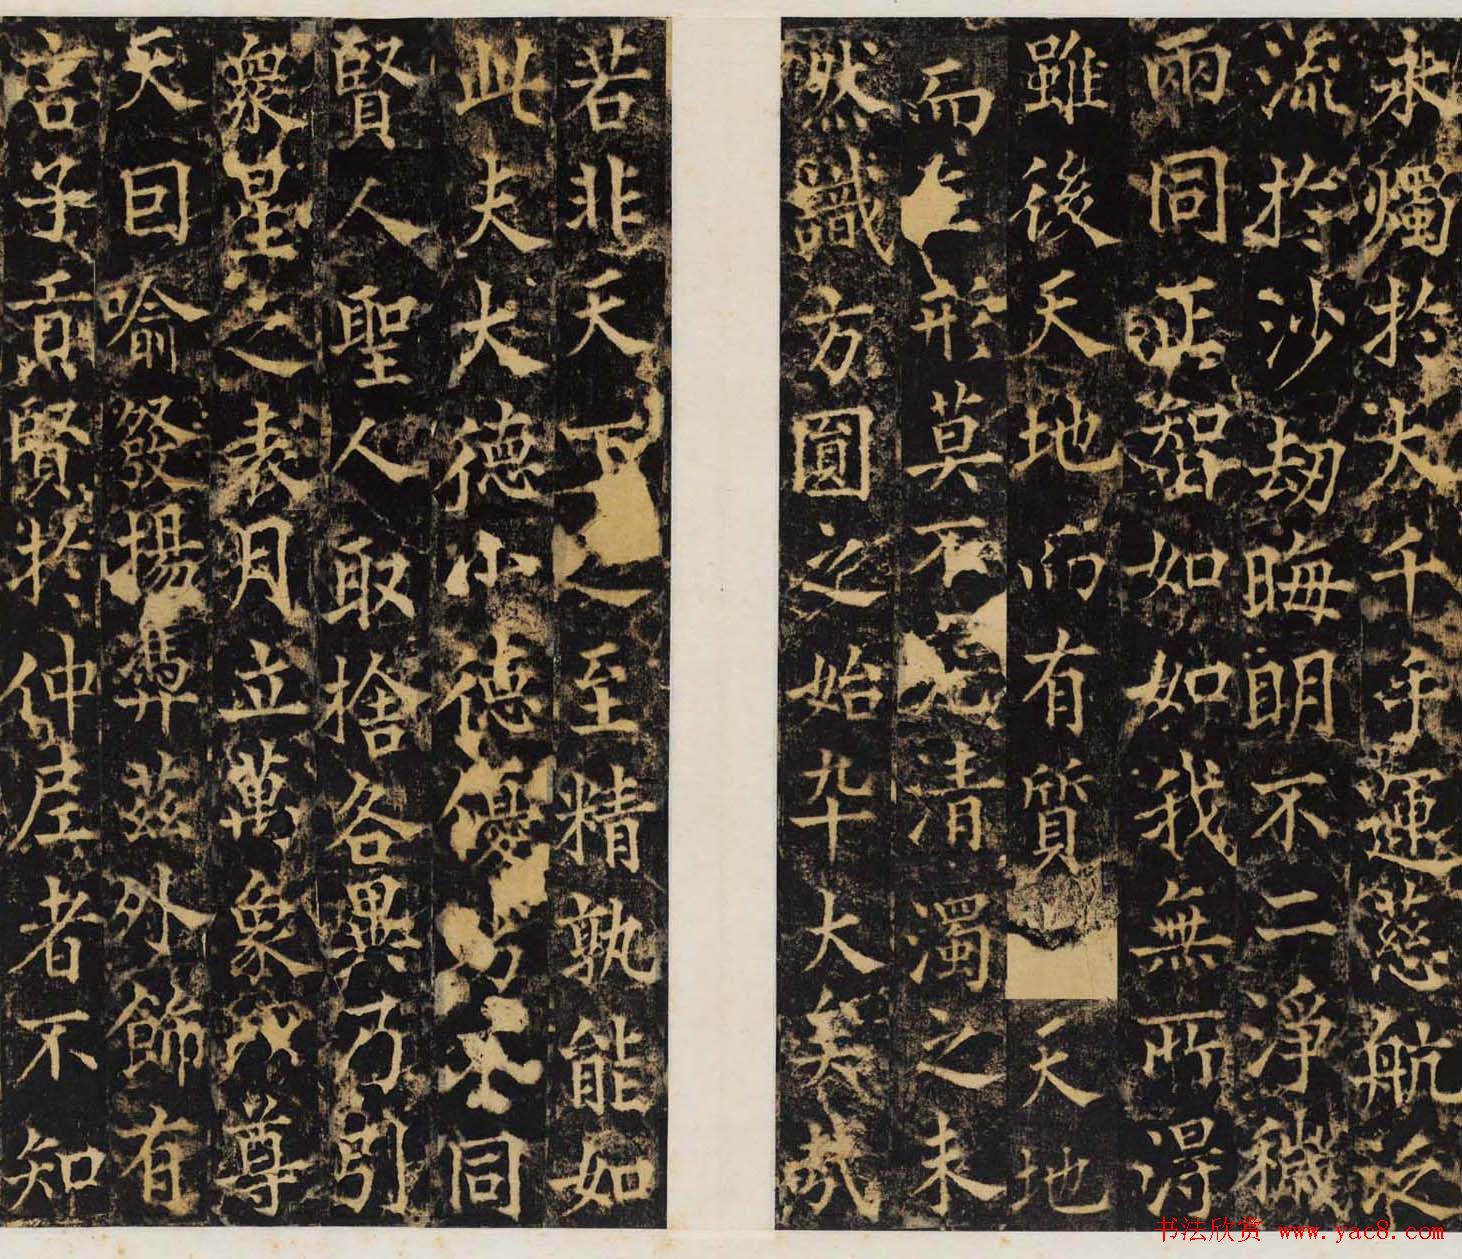 永燭於大千手運慈航泛
流於沙劫晦明不二淨穢
兩同正智如如我無所得
雖後天地而有質天地
而形莫不清濁之未
然識方圓之始大矣哉
若非天下之至精孰能如
此夫大德小德優劣不同
賢人聖人取捨各異乃引
衆星之表月立萬象尊
天囙喻發揚茲外飾有
言子貢賢於仲尼者不知
书法欣赏 www.yac8.com